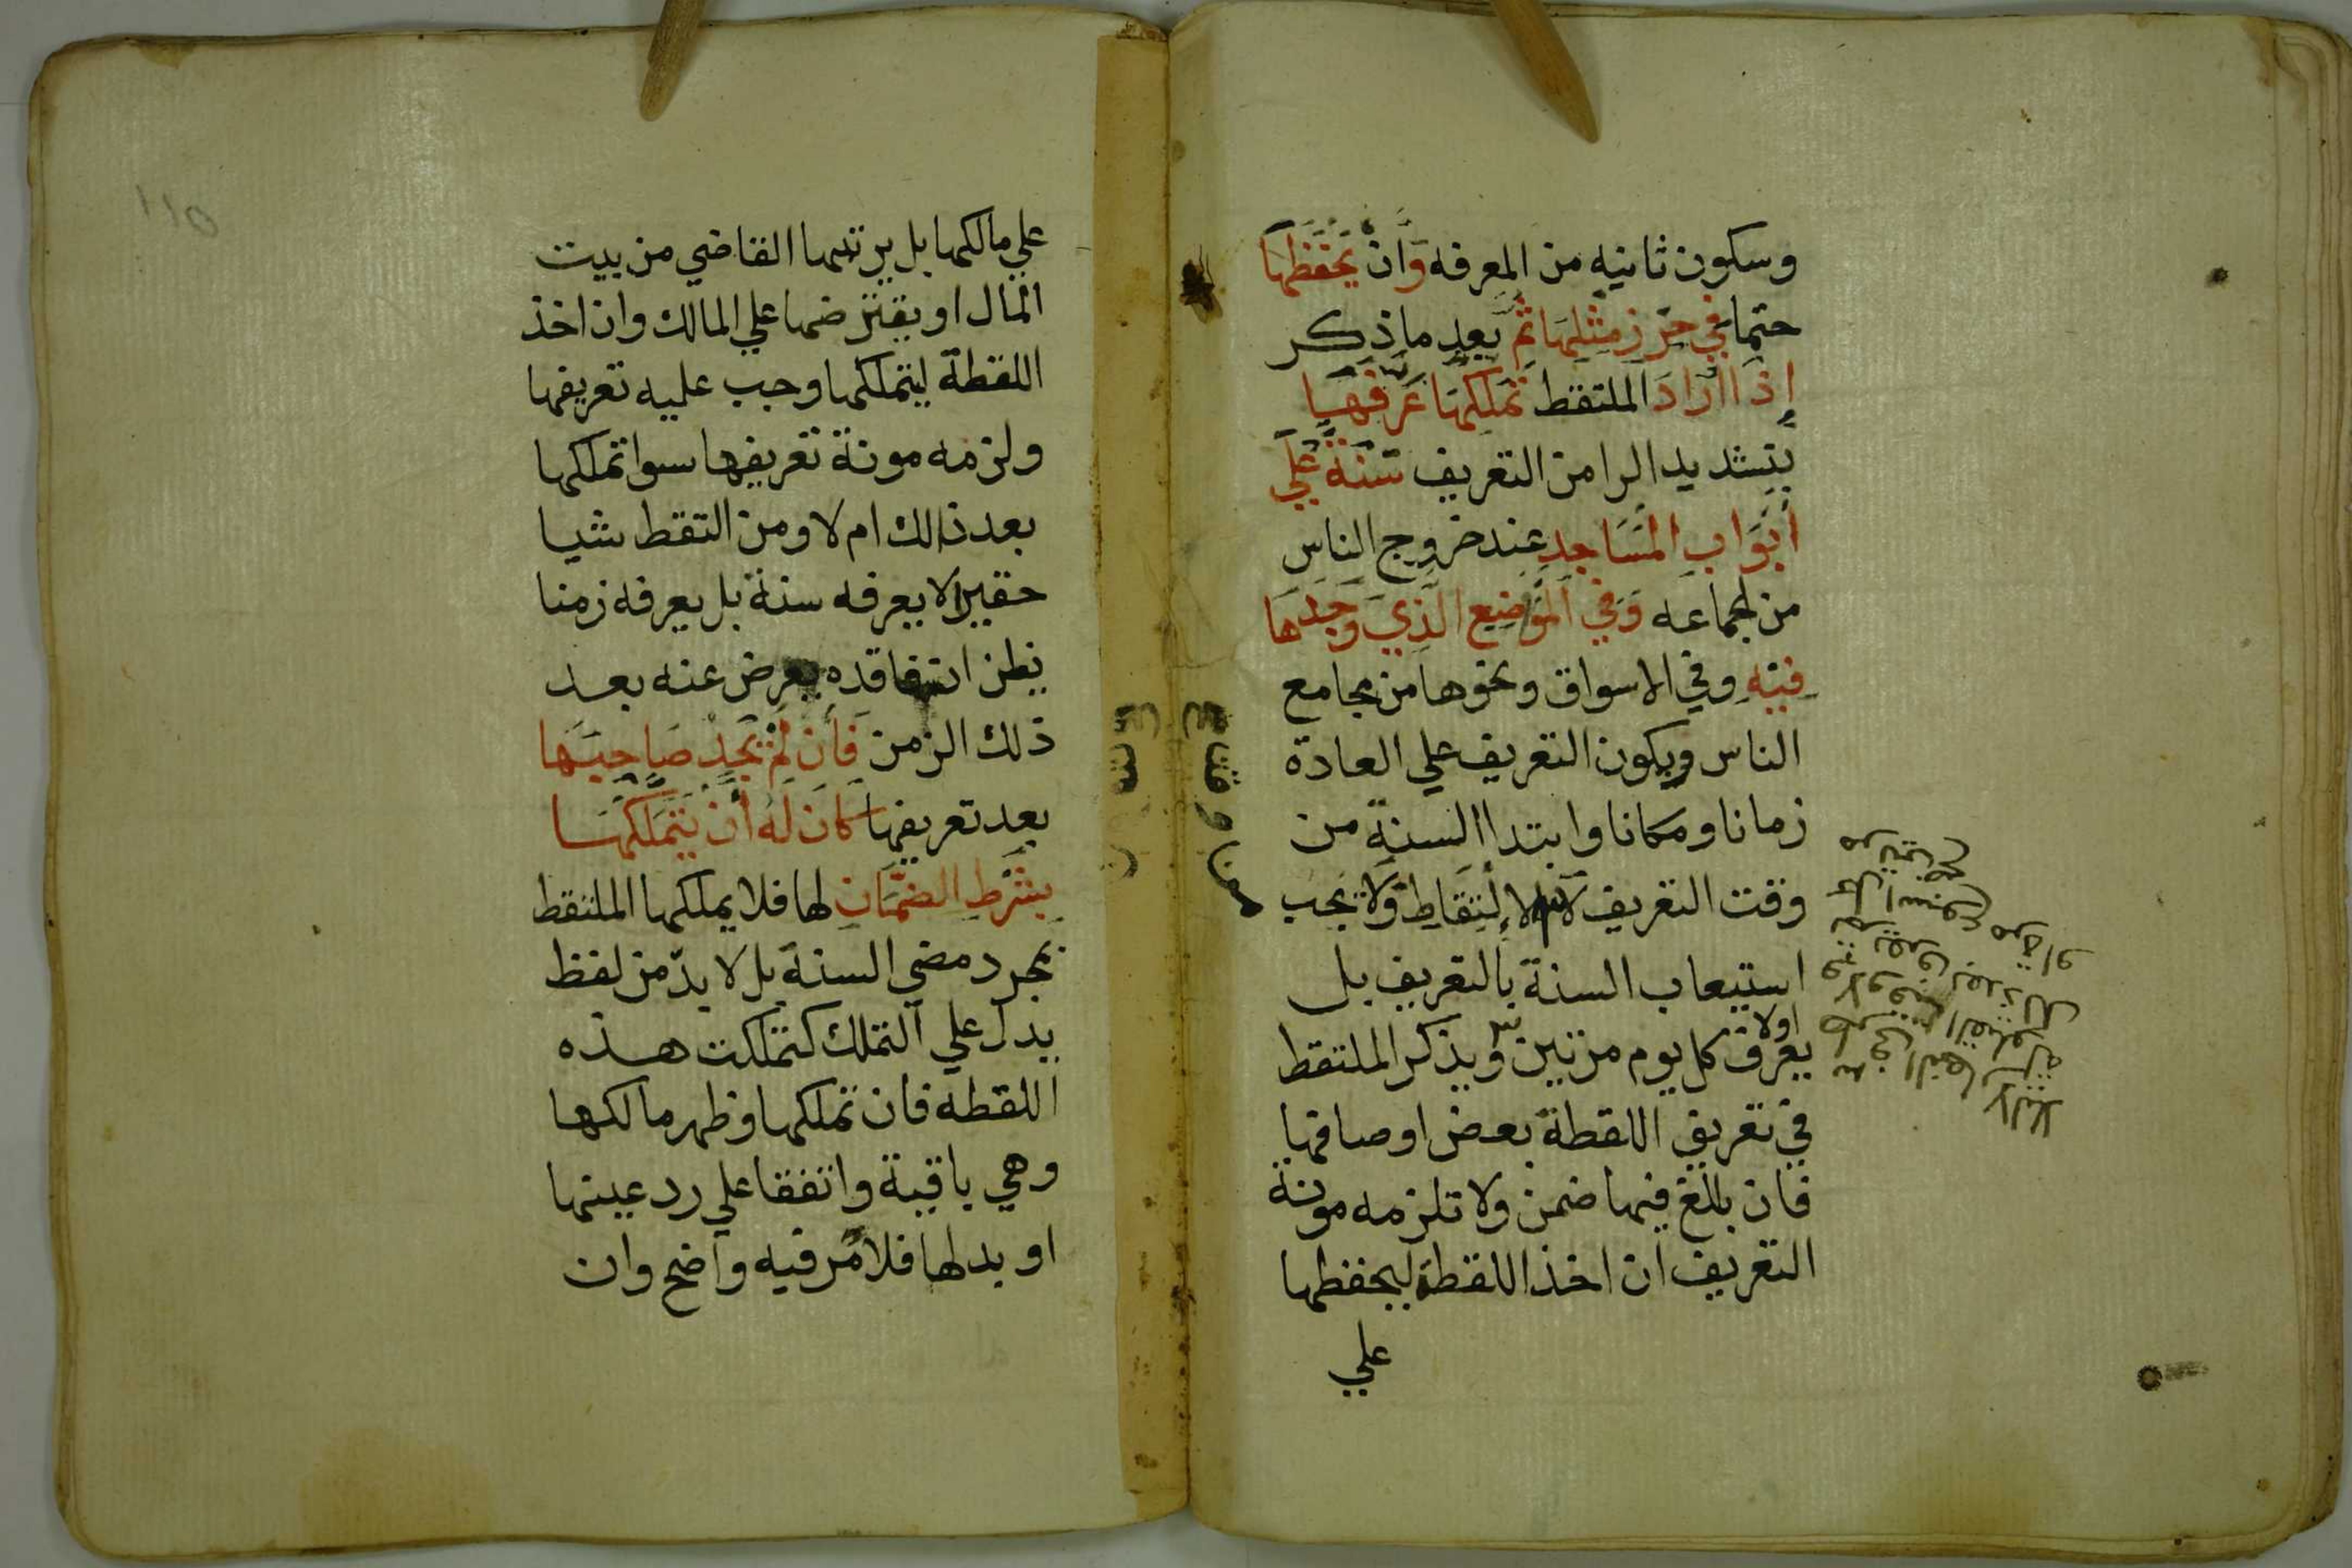 وسكون ثانيه من المعرفه وَأن يَحفَظهَا
حتما في حِرزِ مِثْلِهَا ثُمَّ بعد ما ذكر
إذَا أرَادَ الملتقط تَمَلكهَا عَرَّفَهَا
بتشديد الرا من التعريف سَنَةً عَلَي
أبْوَابِ المَسَاجِدِ عند خروج الناس
من الجماعه وَفي المَوضِعِ الَّذِي وَجَدهَا
فِيْهِ وفي الاسواق ونحوها من مجامع
الناس ويكون التعريف علي العادة
زمانا ومكانا وابتدا السنة من
وقت التعريف لا الالتقاط ولا يجب
استيعاب السنة بالتعريف بل
يعرف اولا كل يوم مرتين ويذكر الملتقط
في تعريف اللقطة بعض اوصافها
فان بالغ فيها ضمن ولا تلزمه مونة
التعريف ان اخذ اللقطة ليحفظها
علي
علي مالكها بل يرتبها القاضي من بيت
المال او يقترضها علي المالك وان اخذ
اللقطة ليتملكها وجب عليه تعريفها
ولزمه مونة تعريفها سوا تملكها
بعد ذالك ام لا ومن التقط شيا
حقيرا لا يعرفه سنة بل يعرفه زمنا
يظن ان فاقده يعرض عنه بعد
ذلك الزمن فَأن لَمْ يَجِدْ صَاحِبَهَا
بعد تعريفها كَانَ لَهُ أن يَتَمَلكهَا
بِشَرطِ الضَمَانِ لها فلا يملكها الملتقط
بمجرد مضي السنة بل لا بدّ من لفظ
يدل علي التملك كتملكت هذه
اللقطه فان تملكها وظهر مالكها
وهي باقية واتفقا علي رد عينها
او بدلها فلامر فيه واضح وان